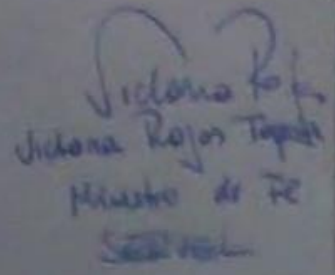 Victoria Rojas
Victoria Rojas Tapia
Ministro de Fe